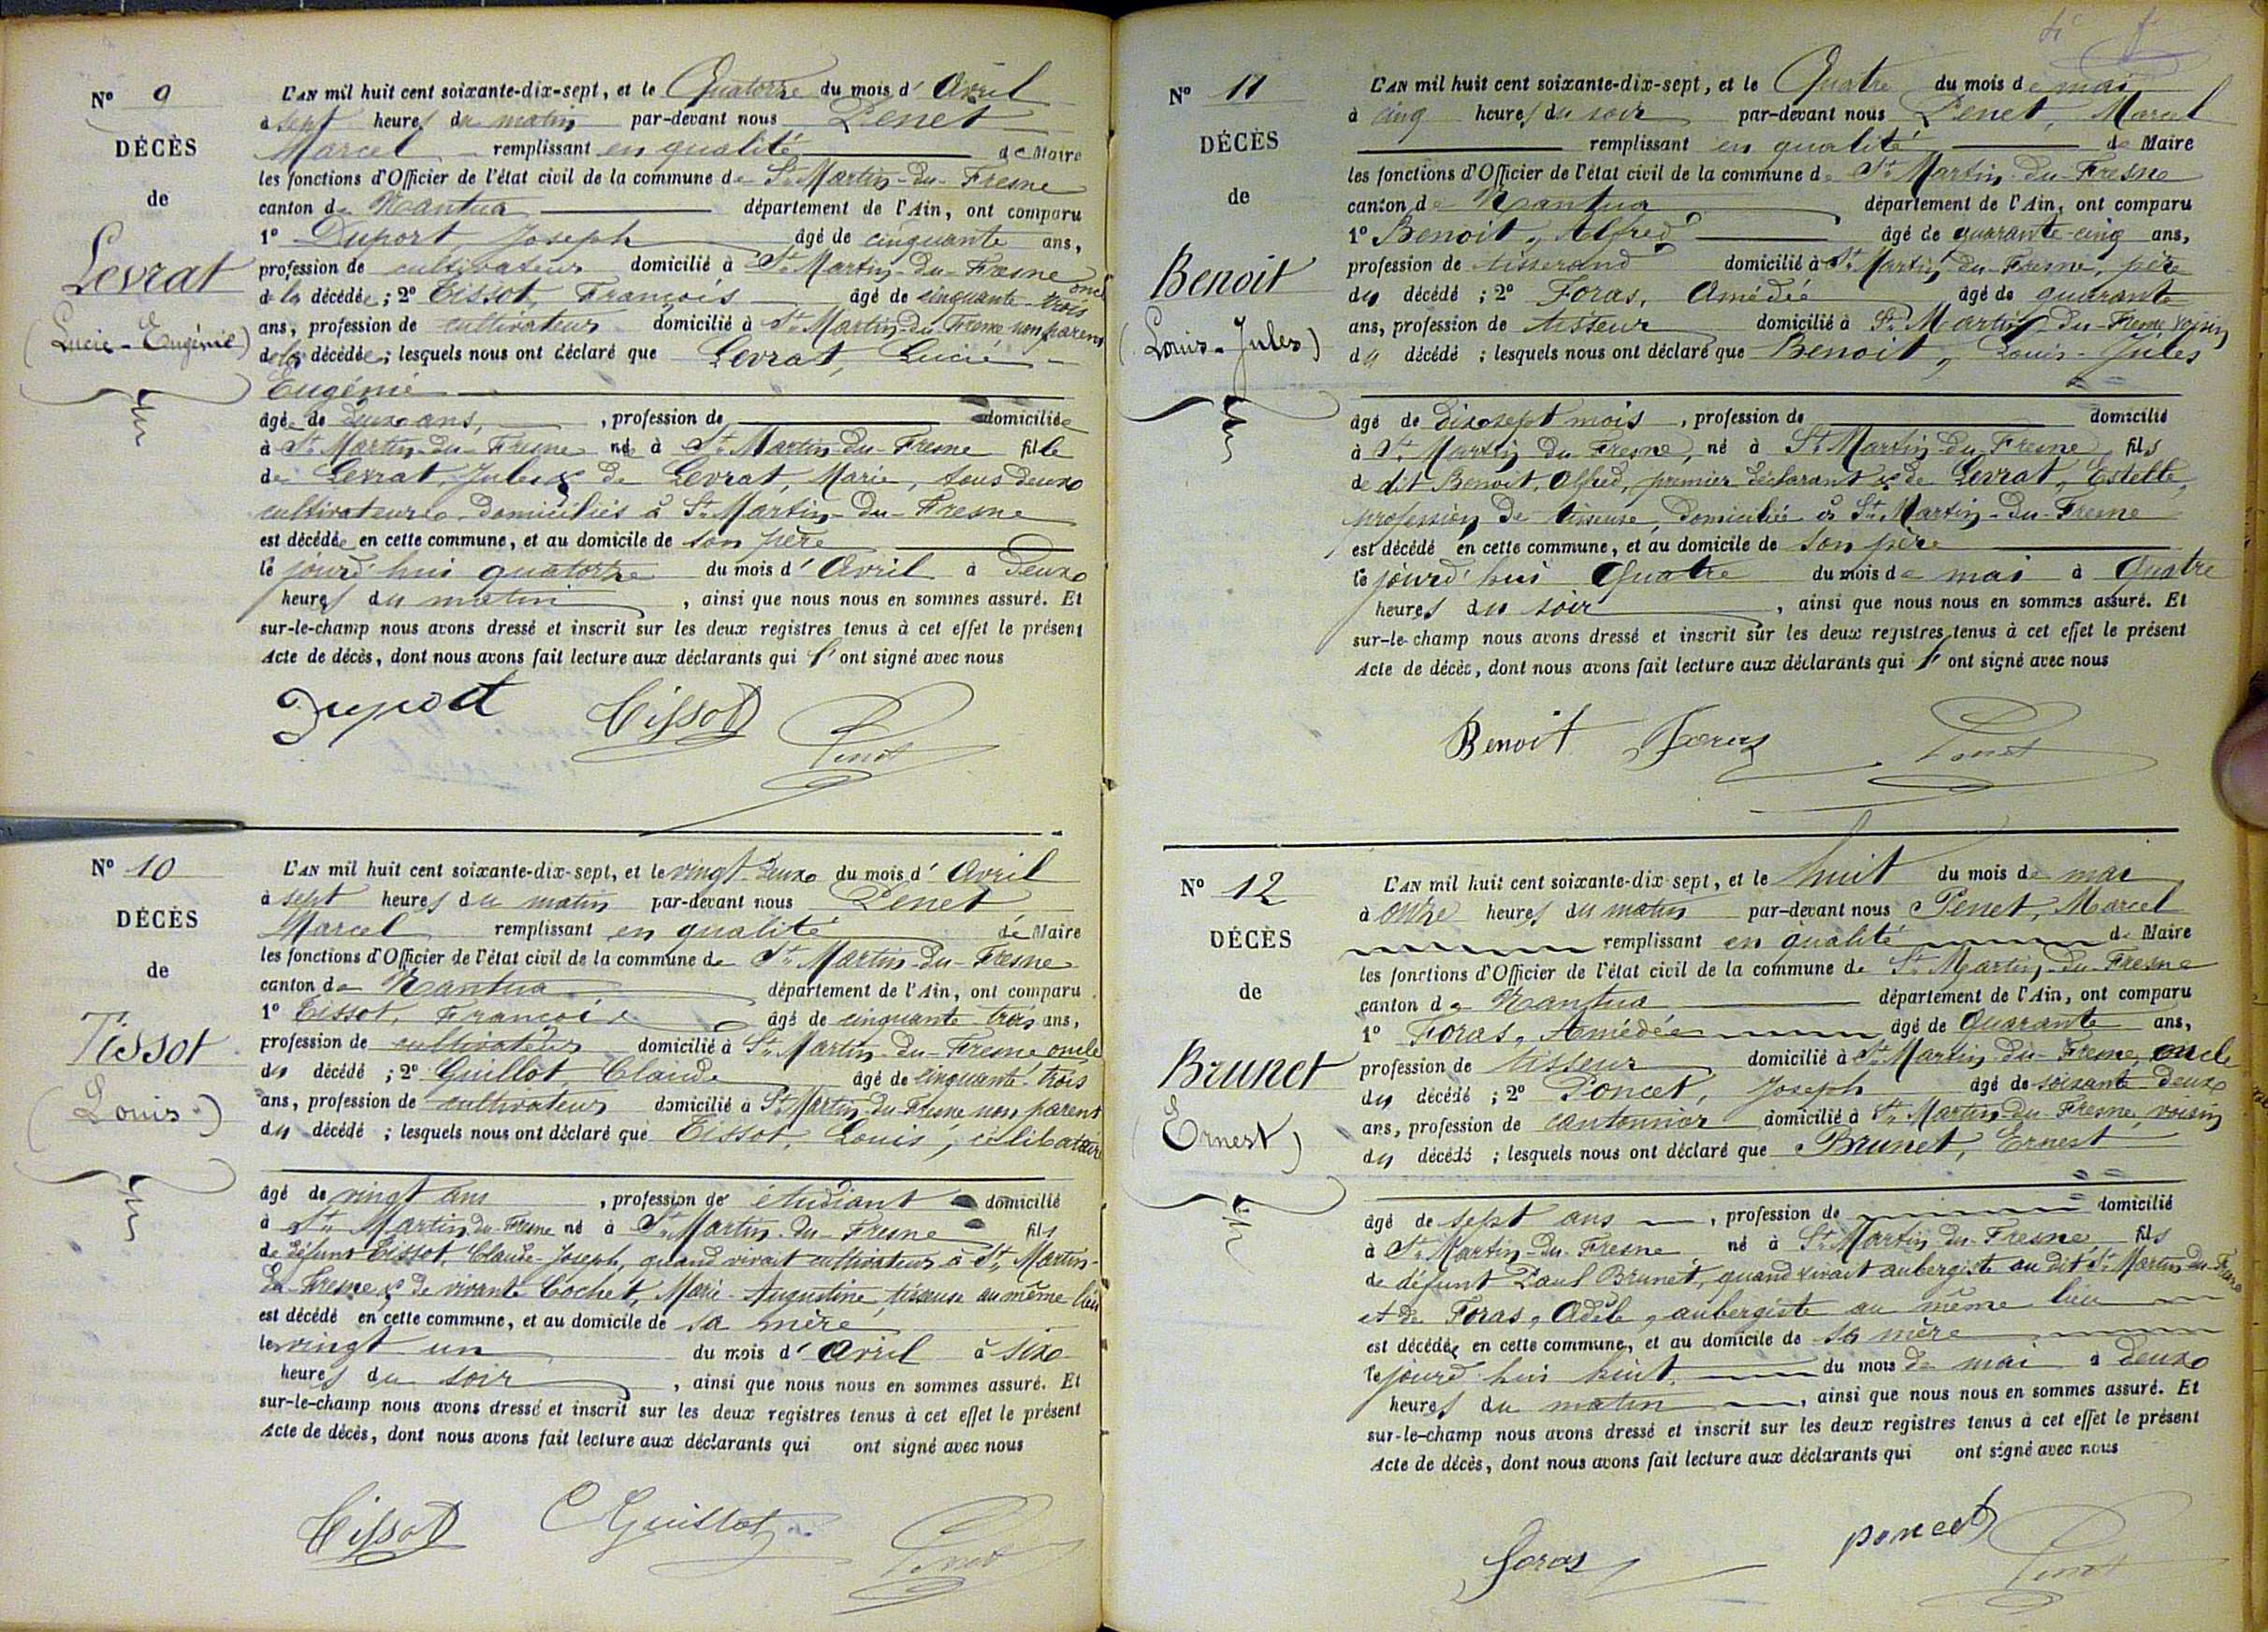 N° 9
DÉCÈS
de
Levrat
(Lucie-Eugénie)
L'AN mil huit cent soixante-dix-sept, et le Quatorze du mois d'Avril
à sept heures du matin par-devant nous Penet
Marcel remplissant en qualité de Maire
les fonctions d'Officier de l'état civil de la commune de St Martin-du-Fresne
canton de Nantua département de l'Ain, ont comparu
1° Duport, Joseph âgé de cinquante ans,
profession de cultivateur domicilié à St Martin-du-Fresne oncle
de la décédée ; 2° Tissot, François âgé de cinquante-trois
ans, profession de cultivateur domicilié à St Martin-du-Fresne non parent
de la décédée ; lesquels nous ont déclaré que Levrat, Lucie
Eugénie
âgée de deux ans, , profession de domiciliée
à St Martin-du-Fresne née à St Martin-du-Fresne fille
de Levrat, Jules & de Levrat, Marie, tous deux
cultivateurs domiciliés à St Martin-du-Fresne
est décédée en cette commune, et au domicile de son père
le jourd'hui quatorze du mois d'Avril à deux
heures du matin , ainsi que nous nous en sommes assuré. Et
sur-le-champ nous avons dressé et inscrit sur les deux registres tenus à cet effet le présent
Acte de décès, dont nous avons fait lecture aux déclarants qui l'ont signé avec nous
Duport Tissot Penet
N° 10
DÉCÈS
de
Tissot
(Louis)
L'AN mil huit cent soixante-dix-sept, et le vingt-deux du mois d'Avril
à sept heures du matin par-devant nous Penet
Marcel remplissant en qualité de Maire
les fonctions d'Officier de l'état civil de la commune de St Martin-du-Fresne
canton de Nantua département de l'Ain, ont comparu
1° Tissot, François âgé de cinquante trois ans,
profession de cultivateur domicilié à St Martin-du-Fresne oncle
du décédé ; 2° Guillot, Claude âgé de cinquante-trois
ans, profession de cultivateur domicilié à St Martin-du-Fresne non parent
du décédé ; lesquels nous ont déclaré que Tissot, Louis, célibataire
âgé de vingt ans , profession de étudiant domicilié
à St Martin-du-Fresne né à St Martin-du-Fresne fils
de défunt Tissot, Claude-Joseph, quand vivait cultivateur à St Martin-
du-Fresne & de vivante Cochet, Marie-Augustine, tisseuse au même lieu
est décédé en cette commune, et au domicile de sa mère
le vingt un du mois d'Avril à six
heures du soir , ainsi que nous nous en sommes assuré. Et
sur-le-champ nous avons dressé et inscrit sur les deux registres tenus à cet effet le présent
Acte de décès, dont nous avons fait lecture aux déclarants qui ont signé avec nous
Tissot C Guillot Penet
N° 11
DÉCÈS
de
Benoit
(Louis-Jules)
L'AN mil huit cent soixante-dix-sept, et le Quatre du mois de mai
à cinq heures du soir par-devant nous Penet, Marcel
remplissant en qualité de Maire
les fonctions d'Officier de l'état civil de la commune de St Martin-du-Fresne
canton de Nantua département de l'Ain, ont comparu
1° Benoit, Alfred âgé de quarante-cinq ans,
profession de tisserand domicilié à St Martin-du-Fresne, père
du décédé ; 2° Foras, Amédée âgé de quarante
ans, profession de tisseur domicilié à St Martin-du-Fresne voisin
du décédé ; lesquels nous ont déclaré que Benoit, Louis-Jules
âgé de dix-sept mois , profession de domicilié
à St Martin du Fresne, né à St Martin-du-Fresne, fils
de dit Benoit, Alfred, premier déclarant & de Levrat, Estelle,
profession de tisseuse, domiciliée à St Martin-du-Fresne
est décédé en cette commune, et au domicile de son père
le jourd'hui Quatre du mois de mai à Quatre
heures du soir , ainsi que nous nous en sommes assuré. Et
sur-le-champ nous avons dressé et inscrit sur les deux registres tenus à cet effet le présent
Acte de décès, dont nous avons fait lecture aux déclarants qui l'ont signé avec nous
Benoit Foras Penet
N° 12
DÉCÈS
de
Brunet
(Ernest)
L'AN mil huit cent soixante-dix-sept, et le huit du mois de mai
à onze heures du matin par-devant nous Penet, Marcel
remplissant en qualité de Maire
les fonctions d'Officier de l'état civil de la commune de St Martin-du-Fresne
canton de Nantua département de l'Ain, ont comparu
1° Foras, Amédée âgé de Quarante ans,
profession de tisseur domicilié à St Martin-du-Fresne, oncle
du décédé ; 2° Poncet, Joseph âgé de soixante-deux
ans, profession de cantonnier domicilié à St Martin-du-Fresne, voisin
du décédé ; lesquels nous ont déclaré que Brunet, Ernest
âgé de sept ans , profession de domicilié
à St Martin-du-Fresne né à St Martin-du-Fresne fils
de défunt Paul Brunet, quand vivait aubergiste au dit St Martin-du-Fresne
et de Foras, Adèle, aubergiste au même lieu
est décédé en cette commune, et au domicile de sa mère
le jourd'hui huit du mois de mai à deux
heures du matin , ainsi que nous nous en sommes assuré. Et
sur-le-champ nous avons dressé et inscrit sur les deux registres tenus à cet effet le présent
Acte de décès, dont nous avons fait lecture aux déclarants qui ont signé avec nous
foras poncet Penet